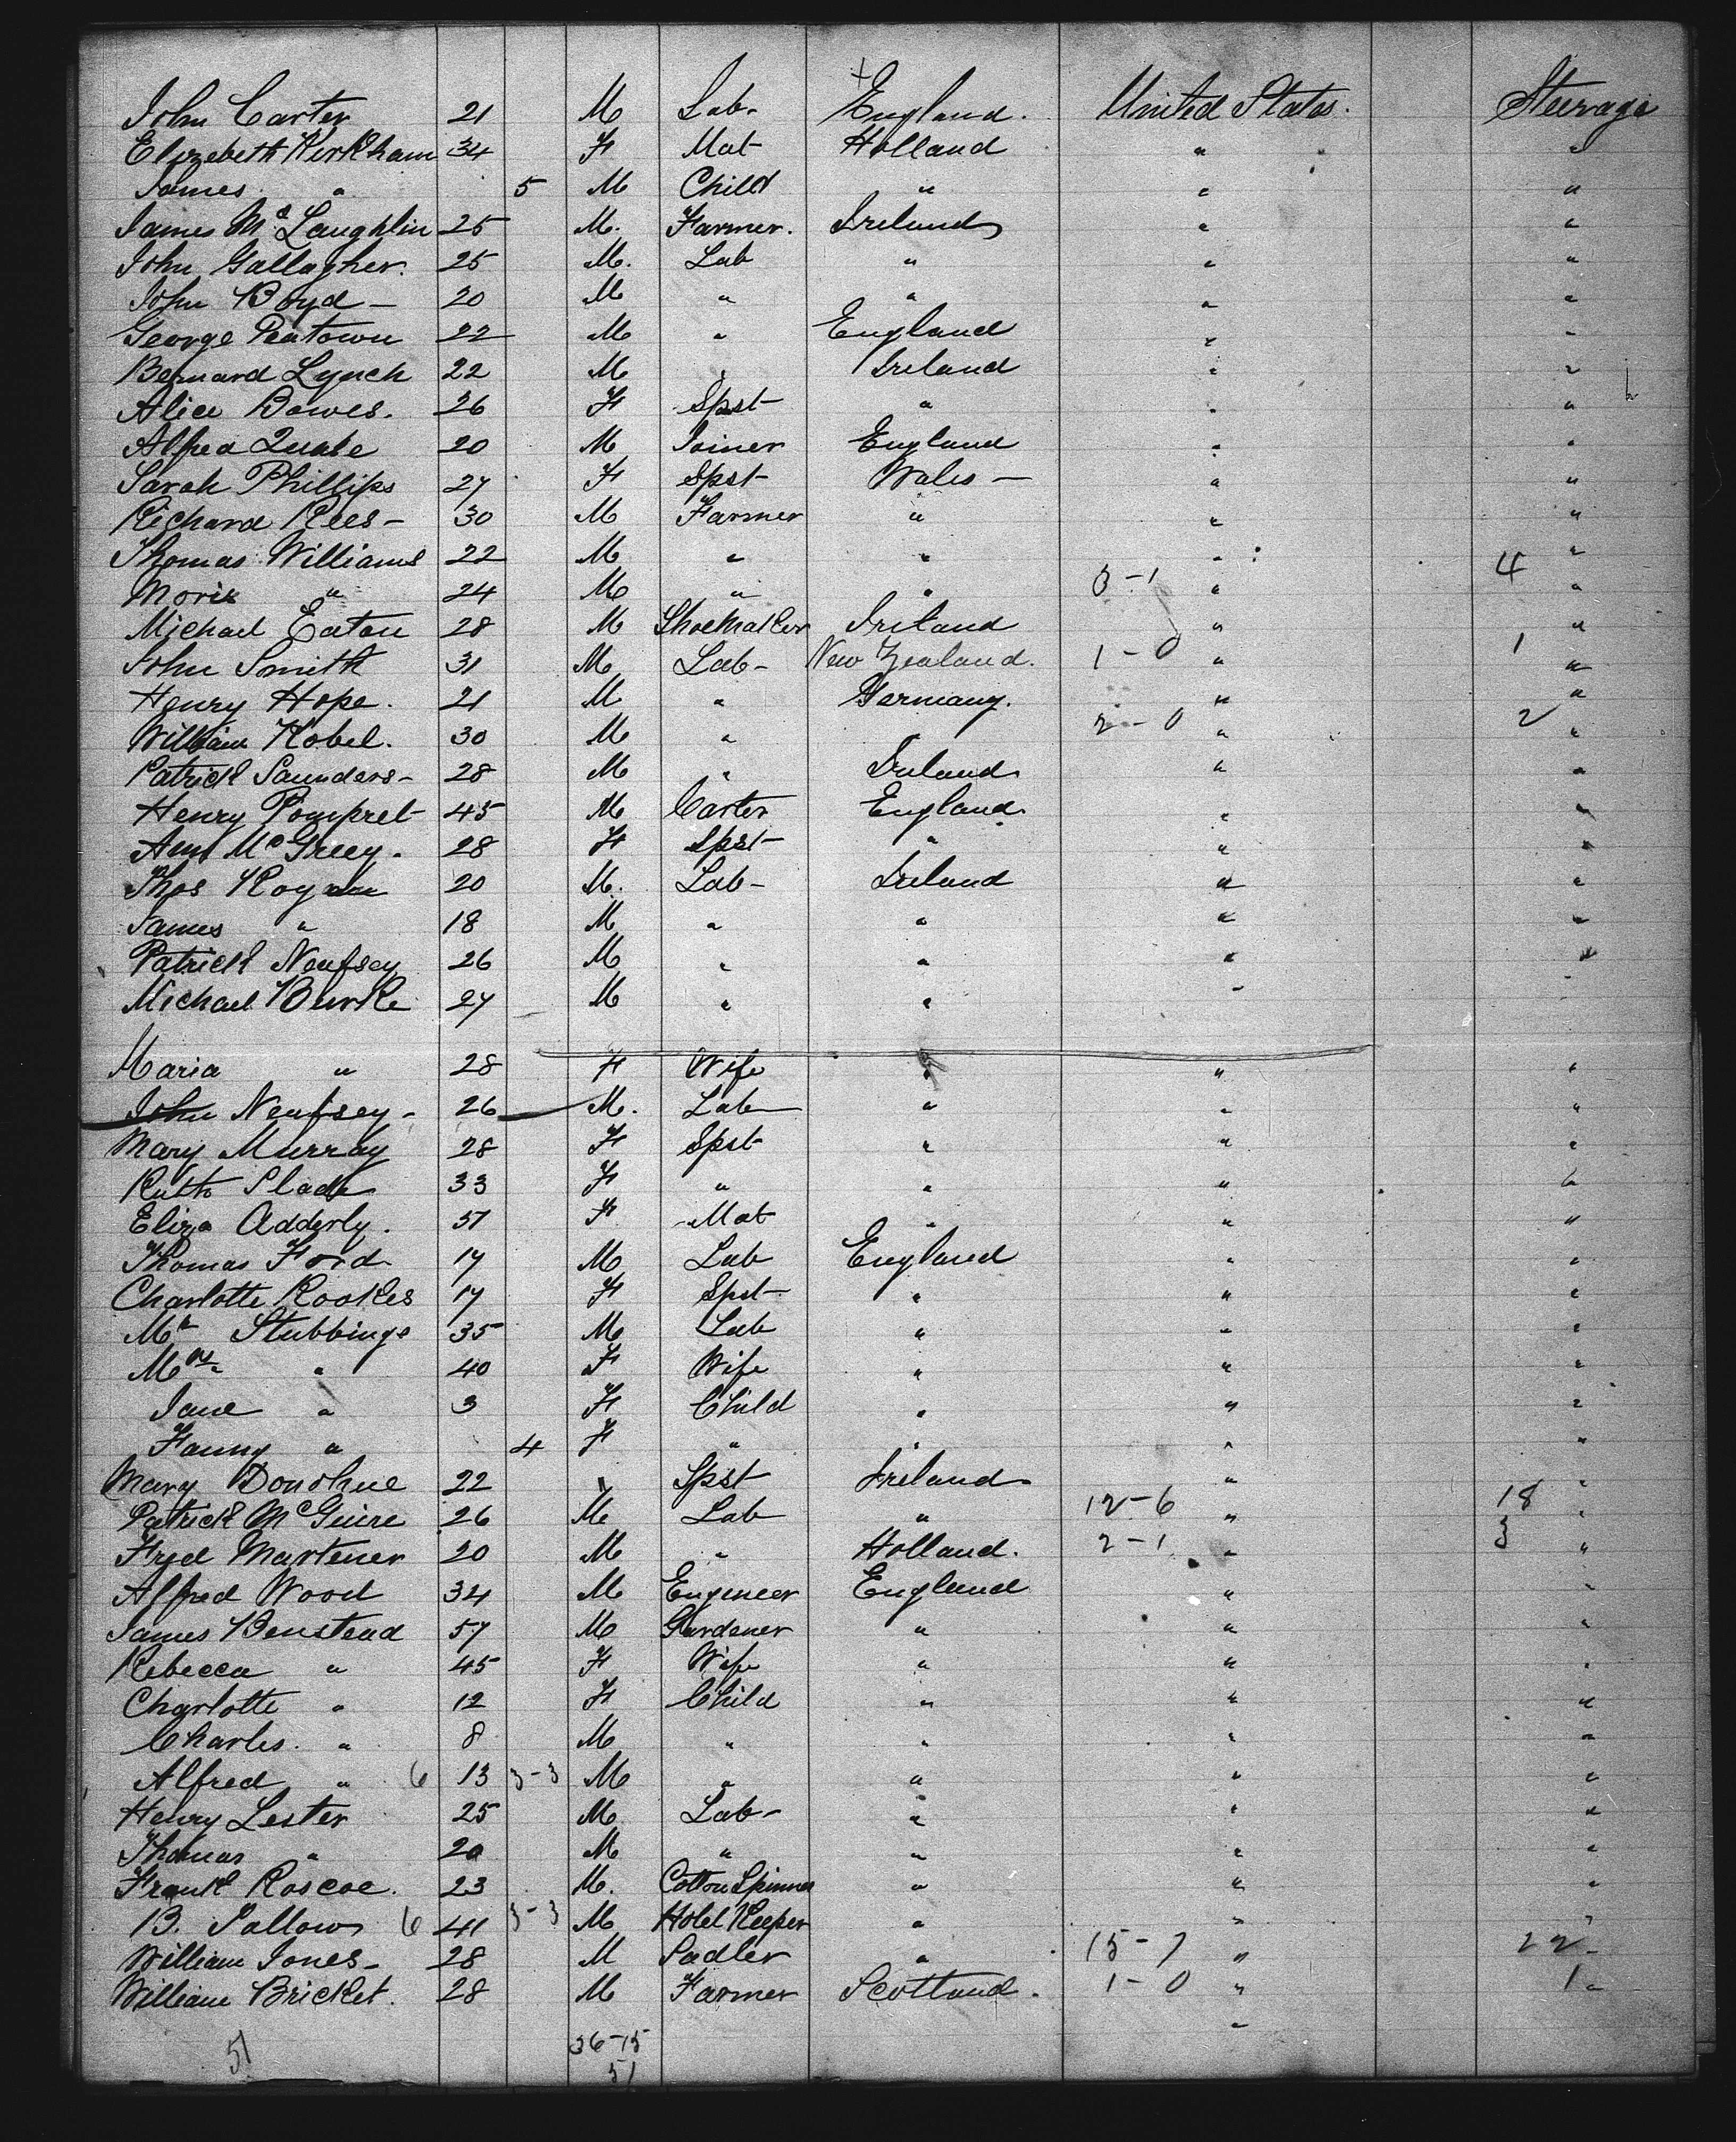 John Carter 21 M Lab- England. United States. Steerage
Elizebeth Kirkham 34 F Mat Holland " "
James " 5 M Child " " "
James McLaughlin 25 M. Farmer. Ireland " "
John Gallagher. 25 M. Lab " " "
John Boyd - 20 M " " " "
George Peatown 22 M " England " "
Bernard Lynch 22 M " Ireland " "
Alice Bowes. 26 F Spst- " " "
Alfred Quale 20 M Joiner England " "
Sarah Phillips 27 F Spst- Wales - " "
Richard Rees - 30 M Farmer " " "
Thomas Williams 22 M " " " "
Moris " 24 M " " 3-1 " 4 "
Michael Eaton 28 M Shoemaker Ireland " "
John Smith 31 M Lab- New Zealand. 1-0 " 1 "
Henry Hope. 21 M " Germany. " "
William Kobel. 30 M " 2-0 " 2 "
Patrick Saunders- 28 M " Ireland " "
Henry Pompret 45 M Carter England " "
Ann McGreey. 28 F Spst- " " "
Thos 20 M. Lab- Ireland " "
James " 18 M " " " "
Patrick Neafsey 26 M " " " "
Michael Burke 27 M " " " "
Maria " 28 F Wife " " "
John Neafsey - 26 M. Lab " " "
Mary Murray 28 F Spst " " "
Ruth Slade 33 F " " " "
Eliza Adderly. 51 F Mat " " "
Thomas Ford 17 M Lab England " "
Charlotte Rookes 17 F Spst- " " "
Mr Stubbings 35 M Lab " " "
Mrs " 40 F Wife " " "
Jane " 3 F Child " " "
Fanny " 4 F " " " "
Mary Donohue 22 Spst Ireland " "
Patrick McGuire 26 M Lab " 12-6 " 18 "
Fryd Martener 20 M " Holland. 2-1 " 3 "
Alfred Wood 34 M Engineer England " "
James Benstead 57 M Gardener " " "
Rebecca " 45 F Wife " " "
Charlotte " 12 F Child " " "
Charles. " 8 M " " " "
Alfred " 6 13 3-3 M " " " "
Henry Lester 25 M Lab- " " "
Thomas " 20 M " " " "
Frank Roscoe. 23 M. Cotton Spinner " " "
B. Sallows 6 41 3-3 M Hotel Keeper " " "
William Jones- 28 M Sadler " 15-7 " 22
William Bricket. 28 M Farmer Scotland. 1-0 " 1 "
51 36-15 "
51